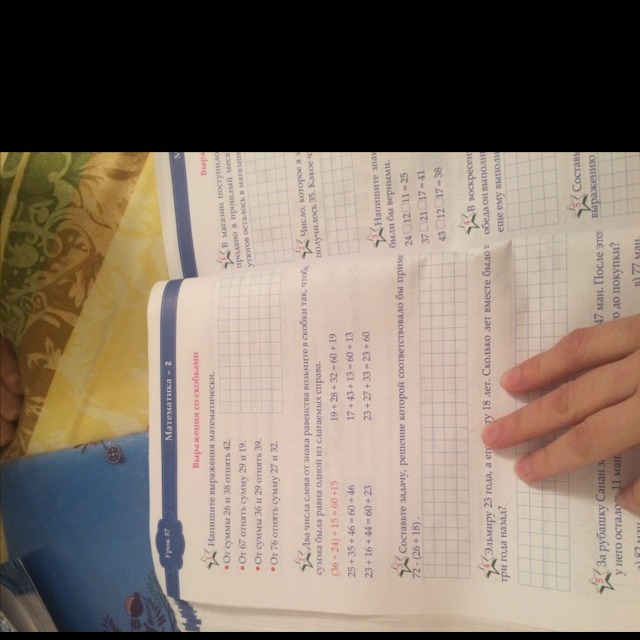 Урок 57
Математика - 2
Выражения со скобками
1 Напишите выражения математически.
• От суммы 26 и 38 отнять 42.
• От 67 отнять сумму 29 и 19.
• От суммы 36 и 29 отнять 39.
• От 76 отнять сумму 27 и 32.
2 Два числа слева от знака равенства возьмите в скобки так, чтобы
сумма была равна одной из слагаемых справа.
(36 + 24) + 15 = 60 + 15 19 + 28 + 32 = 60 + 19
25 + 35 + 46 = 60 + 46 17 + 43 + 13 = 60 + 13
23 + 16 + 44 = 60 + 23 23 + 27 + 33 = 23 + 60
3 Составьте задачу, решение которой соответствовало бы
72 - (26 + 18).
4 Эльмиру 23 года, а его 18 лет. Сколько лет вместе было
три года назад?
5 За рубашку Санан 47 ман. После
у него 11 ман до покупки?
в) 77 ман
В магазин поступило
продано в прошлый
утюгов осталось в магазин
Число, которое я
получилось 35. Какое
Напишите
были бы верными.
24 □ 12 □ 11 = 25
37 □ 21 □ 17 = 41
43 □ 12 □ 17 = 38
В воскресен
обеда он выполни
еще ему выполн
Составь
выражению